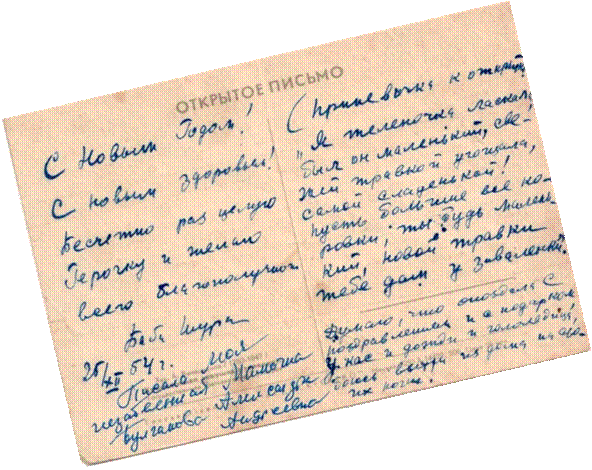 ОТКРЫТОЕ ПИСЬМО
С Новым Годом!
С новым здоровьем!
Бесчетно раз целую
Герочку и желаю
всего благополучного
Баба Шура
25/XII 54 г.
Писала моя
незабвенная Мамочка
Булгакова Александра
Андреевна
(Припевочка к открытке
"Я теленочка ласкала,
был он маленький, све-
жей травкой угощала,
самой сладенькой!
Пусть большие все ко-
ровки, ты будь малень-
кий, новой травки
тебе дам у заваленки."
Думаю, что опоздала с
поздравлением и с подарком
у нас и дожди и гололедица,
боюсь выйти из дома на сво-
их ногах.